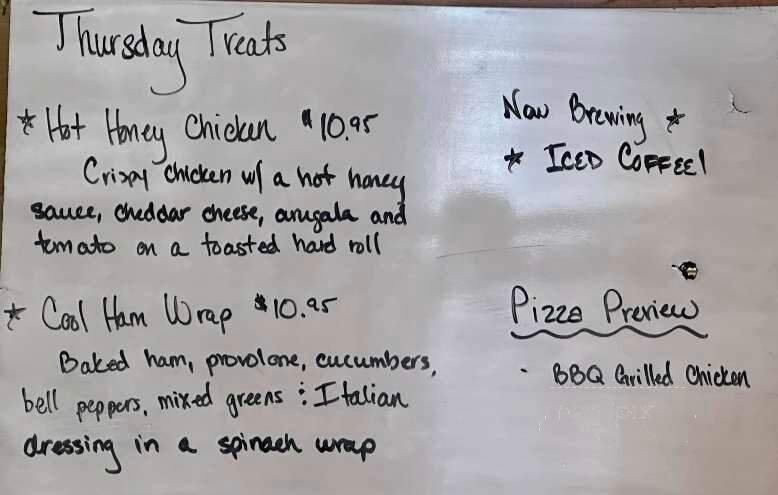 Thursday Treats
* Hot Honey Chicken $10.95
Crispy chicken w/ a hot honey
sauce, cheddar cheese, arugala and
tomato on a toasted hard roll
* Cool Ham Wrap $10.95
Baked ham, provolone, cucumbers,
bell peppers, mixed greens & Italian
dressing in a spinach wrap
Now Brewing *
* ICED COFFEE!
Pizza Preview
· BBQ Grilled Chicken